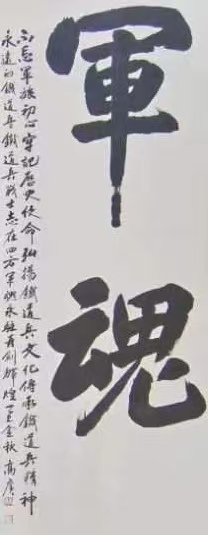 軍魂
不忘軍旅初心牢記歷史使命弘揚鐵道兵文化傳承鐵道兵精神
永遠的鐵道兵鐵道兵戰士志在四方軍魂永駐再創輝煌 金秋 高廣